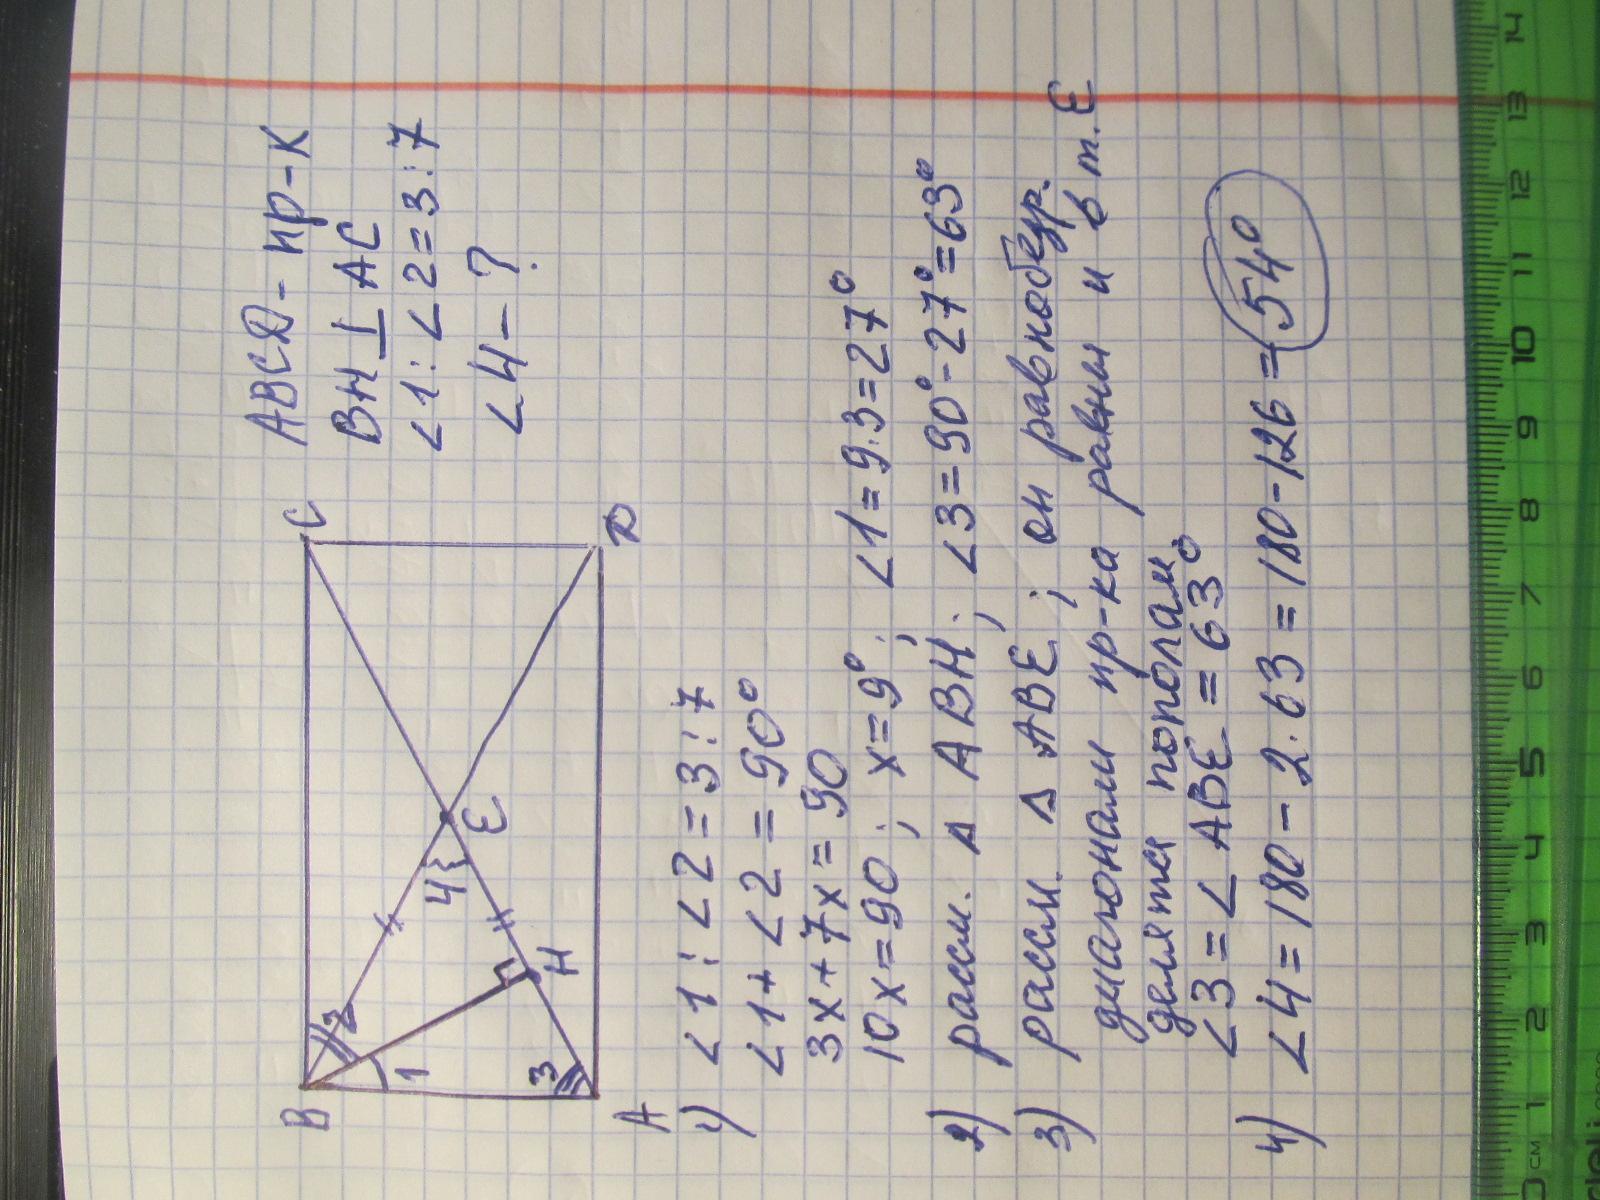 ABCД - пр-к
BH ⊥ AC
∠1 : ∠2 = 3 : 7
∠4 - ?
B
C
A
Д
E
H
1
2
3
4
1) ∠1 : ∠2 = 3 : 7
∠1 + ∠2 = 90°
3x + 7x = 90
10x = 90 ; x = 9° ; ∠1 = 9·3 = 27°
2) рассм. Δ ABH ; ∠3 = 90° - 27° = 63°
3) рассм. Δ ABE ; он равнобедр.
диагонали пр-ка равны и в т. E
делятся пополам
∠3 = ∠ABE = 63°
4) ∠4 = 180 - 2·63 = 180 - 126 = 54°
0 см 1 2 3 4 5 6 7 8 9 10 11 12 13 14